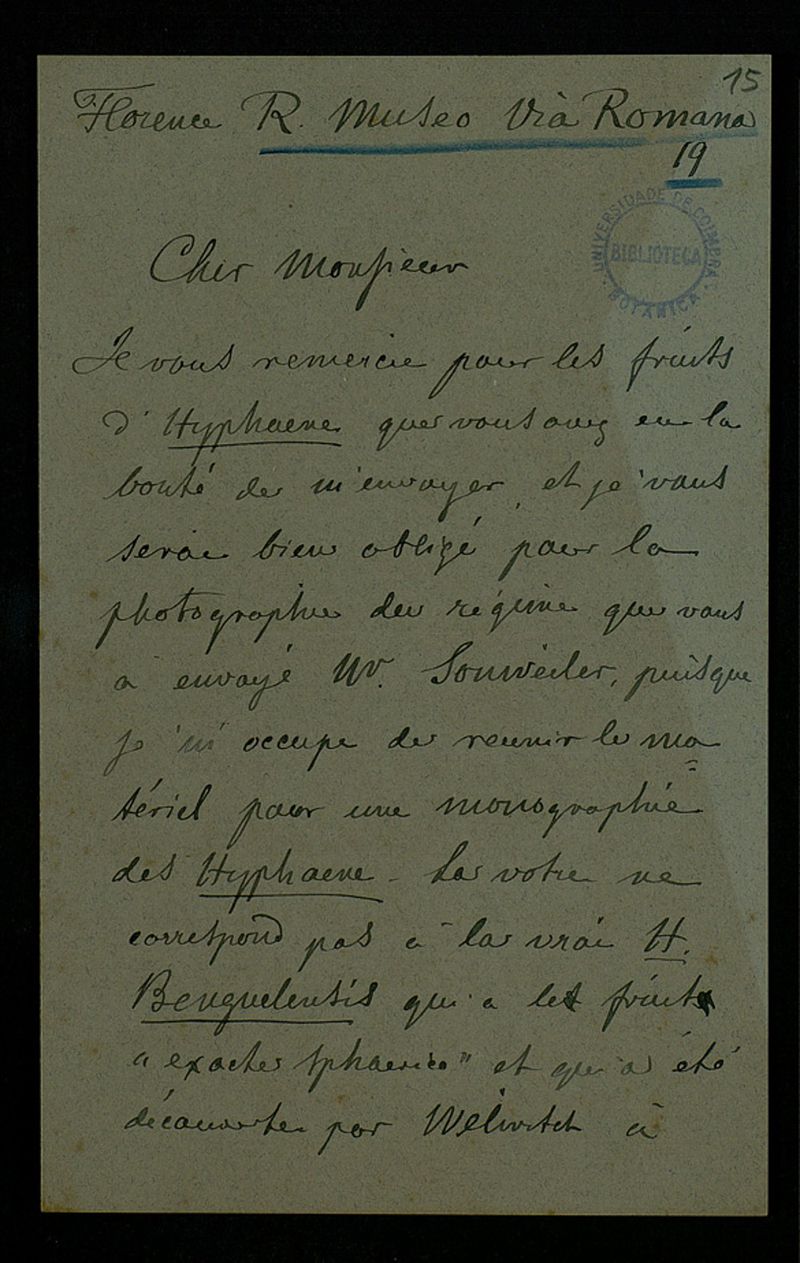 15
Florence R. Museo Via Romana
19
UNIVERSIDADE DE COIMBRA
BIBLIOTECA
BOTANICA
Cher Monsieur
Je vous remercie pour les fruits
d'Hyphaene que vous avez eu la
bonté de m'envoyer, et je vous
serai bien obligé pour la
photographie du régime que vous
a envoyé Mr. , puisque
je m'occupe de reunir le ma=
tériel pour une monographie
des Hyphaene - La votre ne
correspond pas a la vrai H.
Benguelensis qui a les fruits
"exacte sphaerica" et qui a été
découverte par Welwitch à